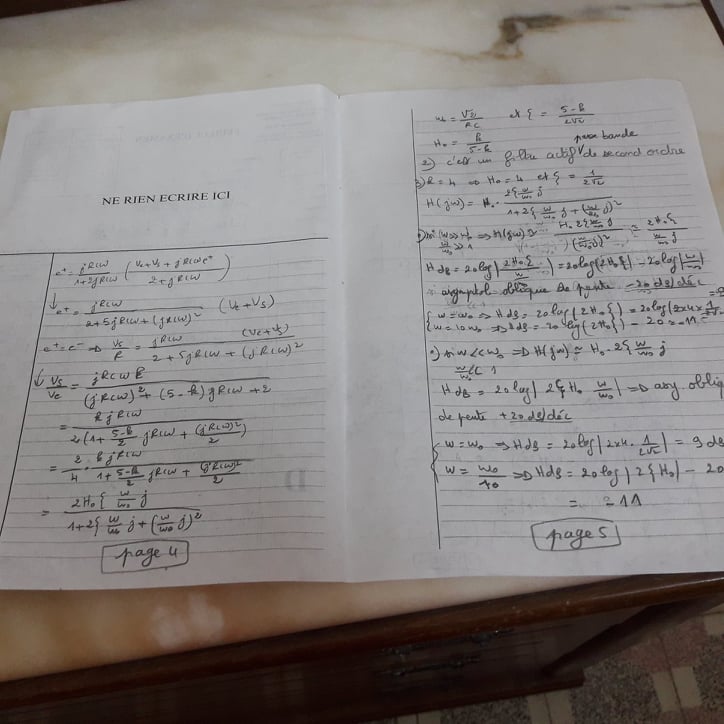 NE RIEN ECRIRE ICI
e⁺ = jRCW / (1+2jRCW) ( (Ve+Vs + jRCWe⁺) / (2+jRCW) )
↓ e⁺ = jRCW / (2+5jRCW+(jRCW)²) (Ve+Vs)
e⁺=e⁻ ⇒ Vs/k = jRCW / (2+5jRCW+(jRCW)²) (Ve+Vs)
↓ Vs/Ve = jRCW k / ((jRCW)²+(5-k)jRCW+2)
= k jRCW / 2(1+ (5-k)/2 jRCW + (jRCW)²/2)
= 2/4 · k jRCW / (1+ (5-k)/2 jRCW + (jRCW)²/2)
= 2H₀ξ w/w₀ j / (1+2ξ w/w₀ j+(w/w₀ j)²)
page 4
w₀ = √2/RC et ξ = (5-k)/2√2
H₀ = k/(5-k)
passe bande
2) c'est un filtre actif de second ordre
3) k = 4 ⇒ H₀ = 4 et ξ = 1/2√2
H(jw) = H₀ · 2ξ w/w₀ j / (1+2ξ w/w₀ j+(w/w₀ j)²)
w/w₀ >> 1 ⇒ H(jw) ≃ H₀ 2ξ w/w₀ j / (w/w₀ j)² = 2H₀ξ / (w/w₀ j)
HdB = 20log|2H₀ξ / (w/w₀)| = 20log|2H₀ξ| - 20log|w/w₀|
asymptote oblique de pente -20dB/déc
{ w=w₀ ⇒ HdB = 20log(2H₀ξ) = 20log(2×4×1/2√2) = 9
{ w=10w₀ ⇒ HdB = 20log(2H₀ξ) - 20 = -11
•) si w<<w₀ ⇒ H(jw) ≃ H₀ · 2ξ w/w₀ j
w/w₀ << 1
HdB = 20log|2ξH₀ w/w₀| ⇒ asy. obliq
de pente +20dB/déc
{ w=w₀ ⇒ HdB = 20log|2×4·1/2√2| = 9dB
{ w = w₀/10 ⇒ HdB = 20log|2ξH₀| - 20
= -11
page 5